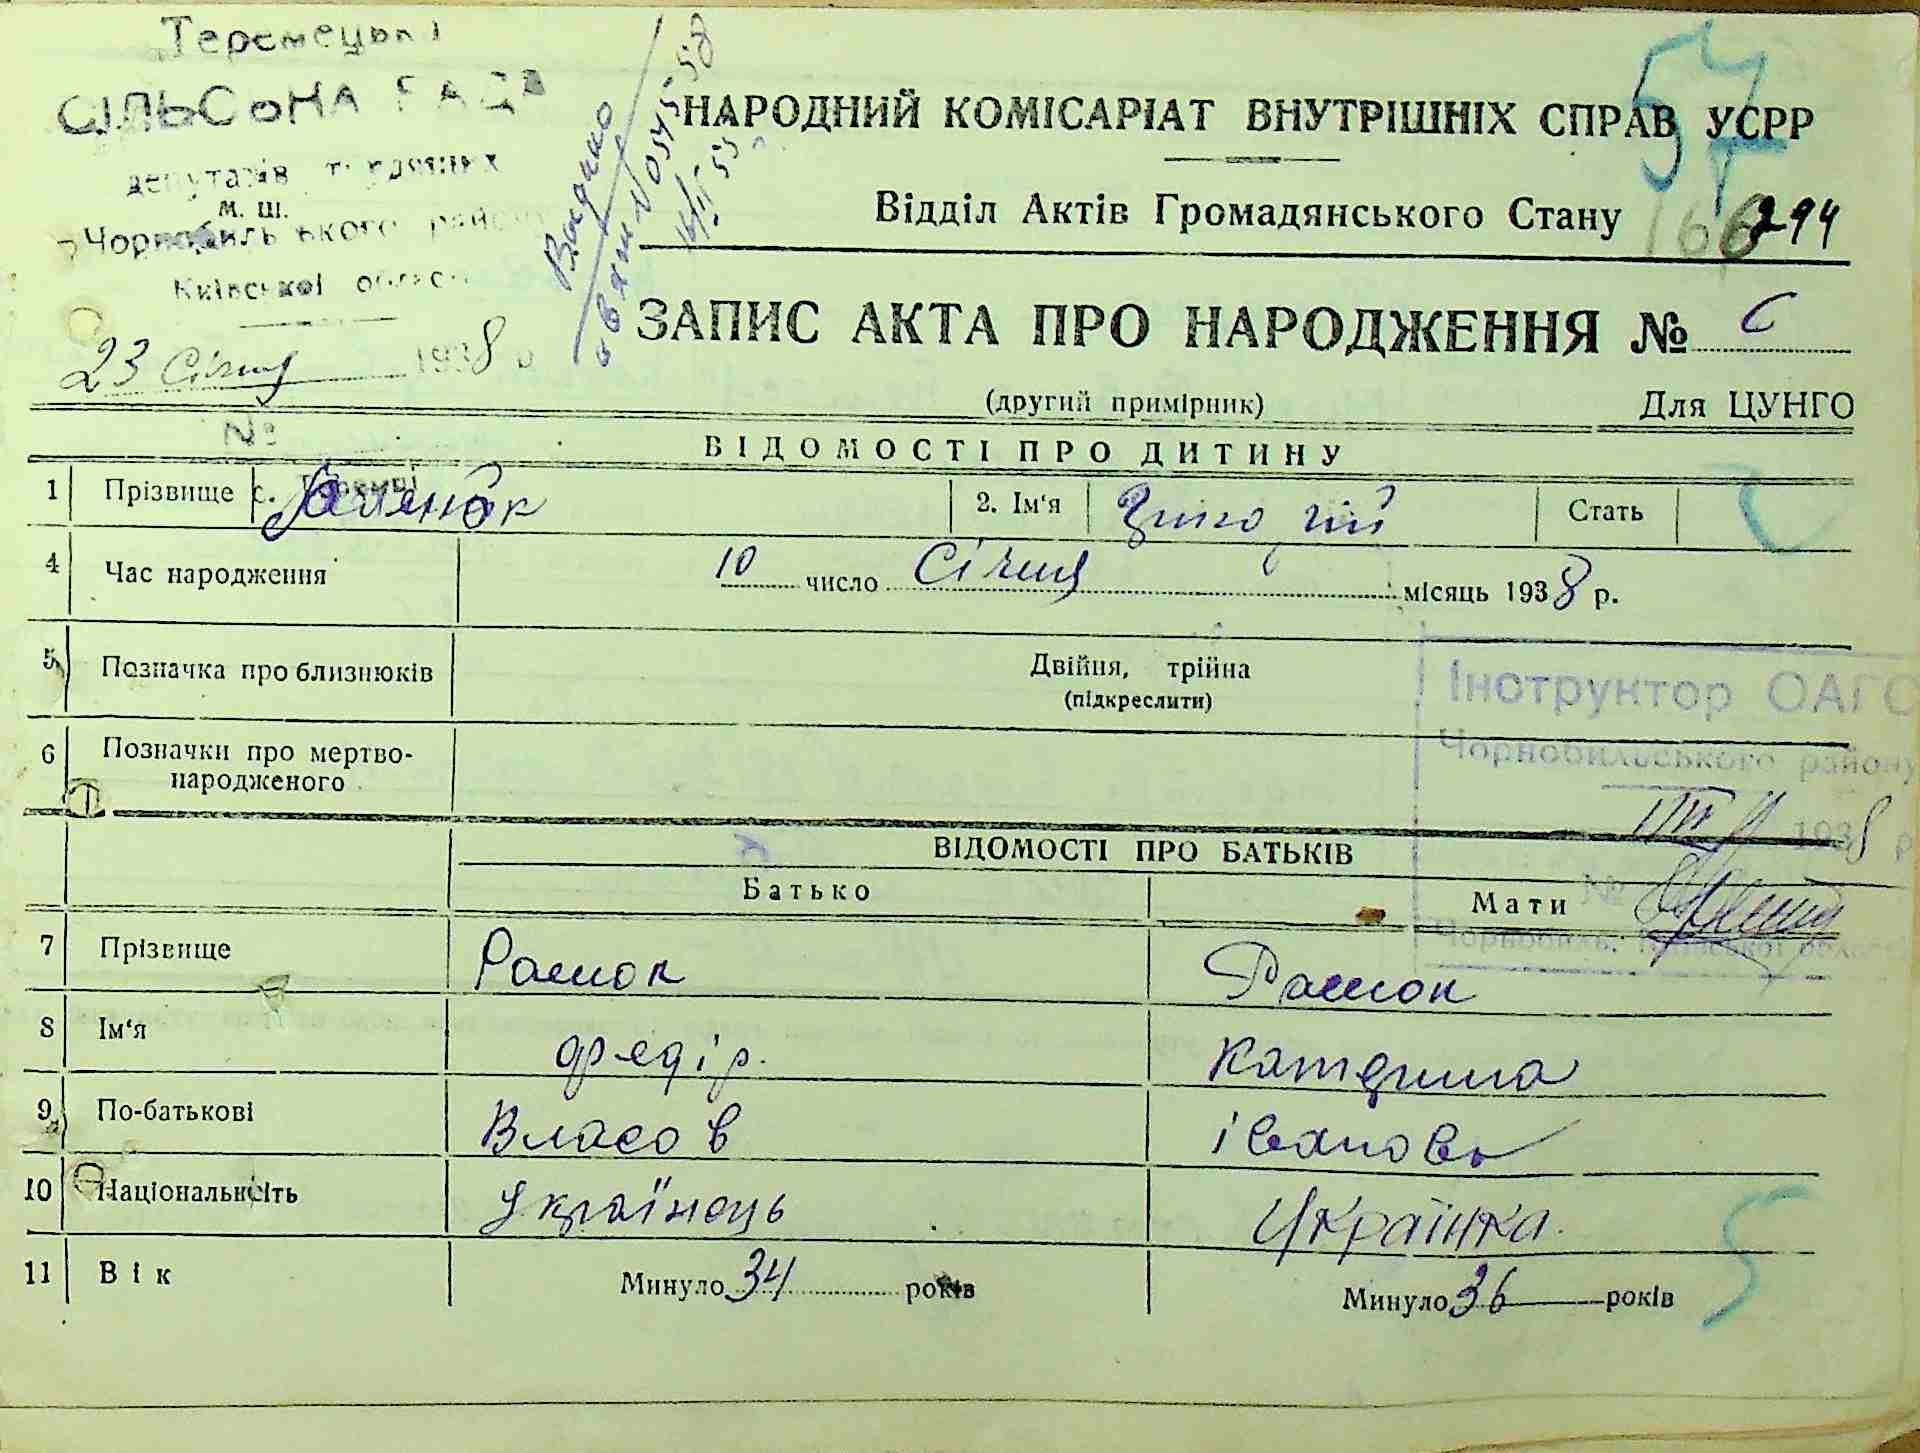 Теремецька
СІЛЬСЬКА РАДА
депутатів трудящих
м. ш.
Чорнобильського району
Київської області
23 Січня 1938 р
№
с. Теремці
Видано
свят № 034558
14/II 55
НАРОДНИЙ КОМІСАРІАТ ВНУТРІШНІХ СПРАВ УСРР
57
Відділ Актів Громадянського Стану
166 294
ЗАПИС АКТА ПРО НАРОДЖЕННЯ № 6
(другий примірник)
Для ЦУНГО
ВІДОМОСТІ ПРО ДИТИНУ
1 Прізвище 2. Ім'я Григорій Стать
4 Час народження 10 число Січня місяць 1938 р.
5 Позначка про близнюків Двійня, трійна
(підкреслити)
6 Позначки про мертво-
народженого
Інструктор ОАГС
Чорнобильського району
1938 р
№
Чорнобиль, Київської області
ВІДОМОСТІ ПРО БАТЬКІВ
Батько Мати
7 Прізвище
8 Ім'я Федір. Катерина
9 По-батькові Власов Івановь
10 Національність Українець Українка.
11 Вік Минуло 34 років Минуло 36 років
5